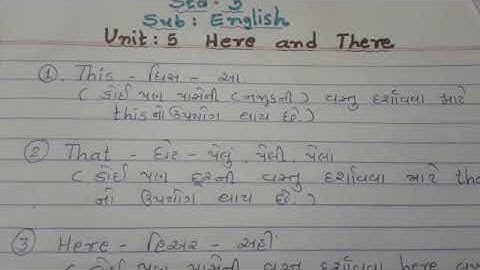 Std: 5
Sub: English
Unit: 5 Here and There
① This - ધિસ - આ
( કોઈ પણ પાસેની (નજીકની) વસ્તુ દર્શાવવા માટે
this નો ઉપયોગ થાય છે.)
② That - ધેટ - પેલું, પેલી, પેલા
( કોઈ પણ દૂરની વસ્તુ દર્શાવવા માટે tha
નો ઉપયોગ થાય છે.)
③ Here - હિઅર - અહીં
( કોઈ પણ પાસેની વસ્તુ દર્શાવવા here